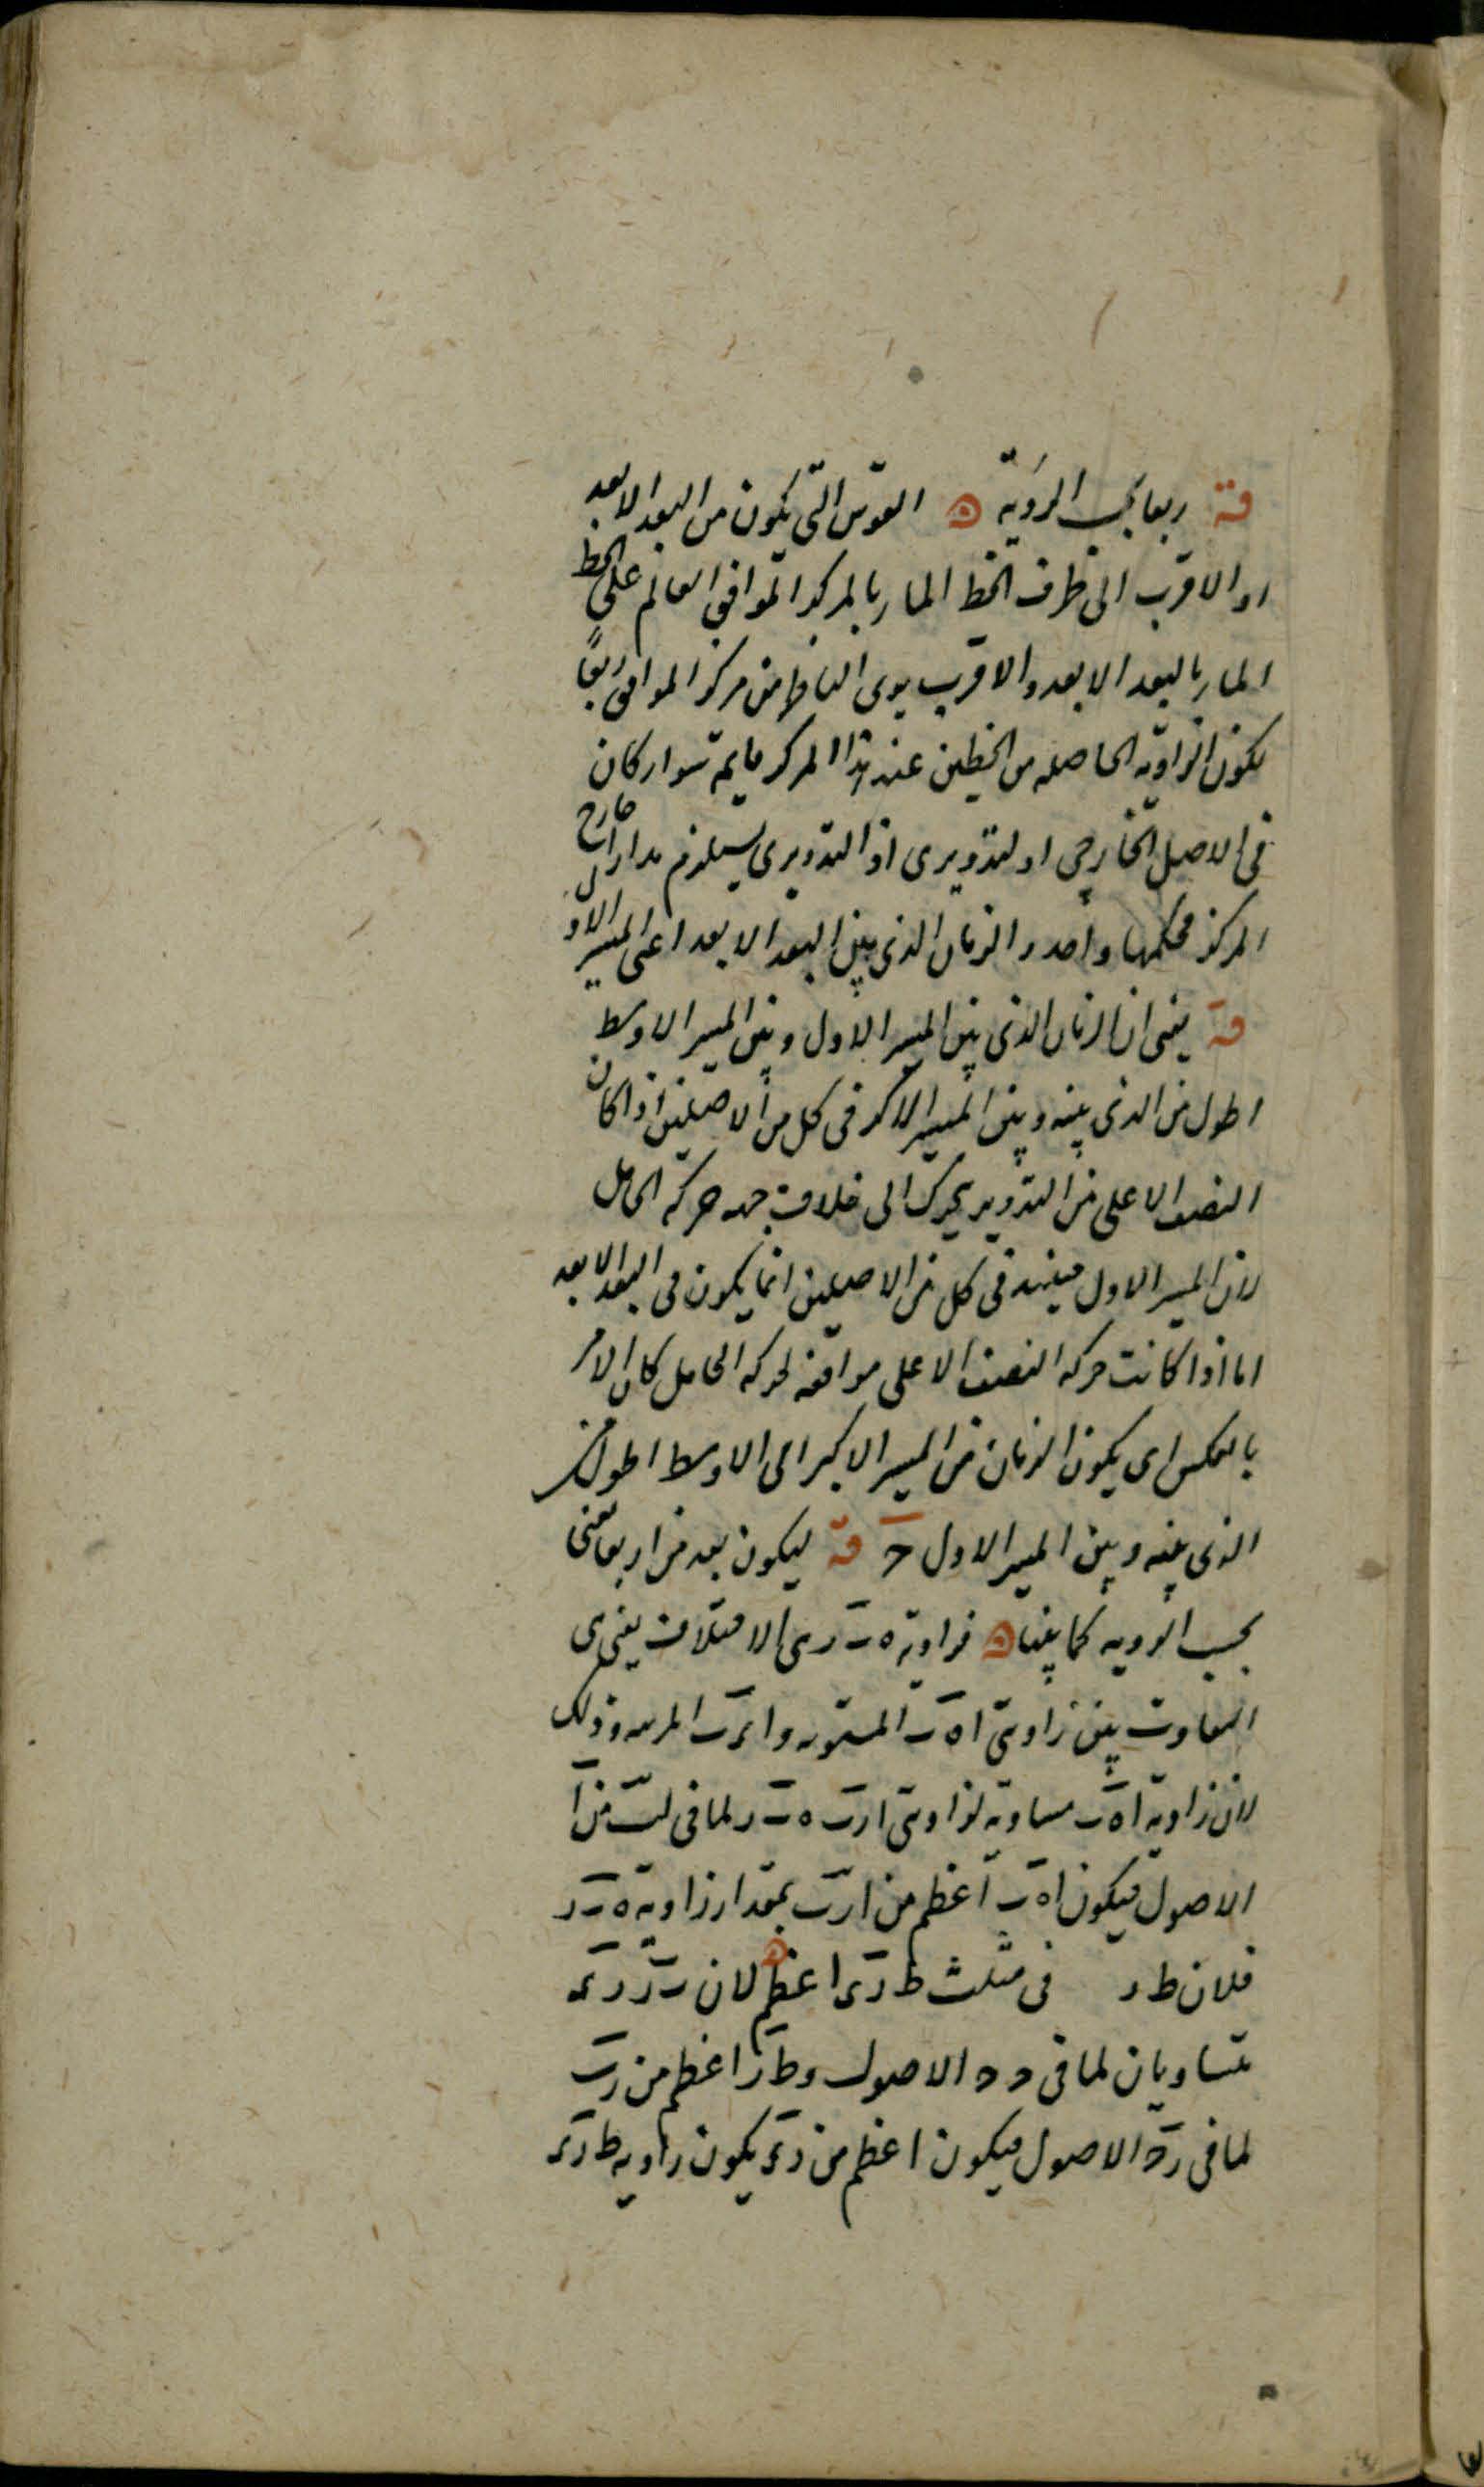 قة ربعا بحسب الروية ه القوس التى يكون من البعد الابعد
او الاقرب الى طرف الخط المار بالمركز الموافق القائم على الخط
المار بالبعد الابعد والاقرب يرى الناظر من مركز الموافق ربعًا
لكون الزاوية الحاصلة من الخطين عند هذا المركز قايمة سواء كان
فى الاصل الخارجى او التدويرى اذ التدويرى يستلزم مدار الخارج
المركز فحكمهما واحد والزمان الذى بين البعد الابعد اعنى المسير الاول
قة يعنى ان الزمان الذى بين المسير الاول وبين المسير الاوسط
اطول من الذى بينه وبين المسير الاكبر فى كل من الاصلين اذا كان
النصف الاعلى من التدوير يتحرك الى خلاف جهة حركة الحامل
لان المسير الاول حينئذ فى كل من الاصلين انما يكون فى البعد الابعد
اما اذا كانت حركة النصف الاعلى موافقة لحركة الحامل كان الامر
بالعكس اى يكون الزمان من المسير الاكبر الى الاوسط اطول من
الذى بينه وبين المسير الاول قة ليكون بعد من ا ربعا يعنى
بحسب الروية كما بينا ه فزاوية ه ب د هى الاختلاف يعنى هى
التفاوت بين زاويتى ا ه ب المستوية و المرئية وذلك
لان زاوية ا ه ب مساوية لزاويتى ا د ب ه ب د لما فى لب من ا
الاصول فيكون ا ه ب اعظم من ا د ب بمقدار زاوية ه ب د
فلان ط د فى مثلث اعظم ه لان
متساويان لما فى الاصول و ط د اعظم من د ب
لما فى الاصول فيكون اعظم من يكون زاوية